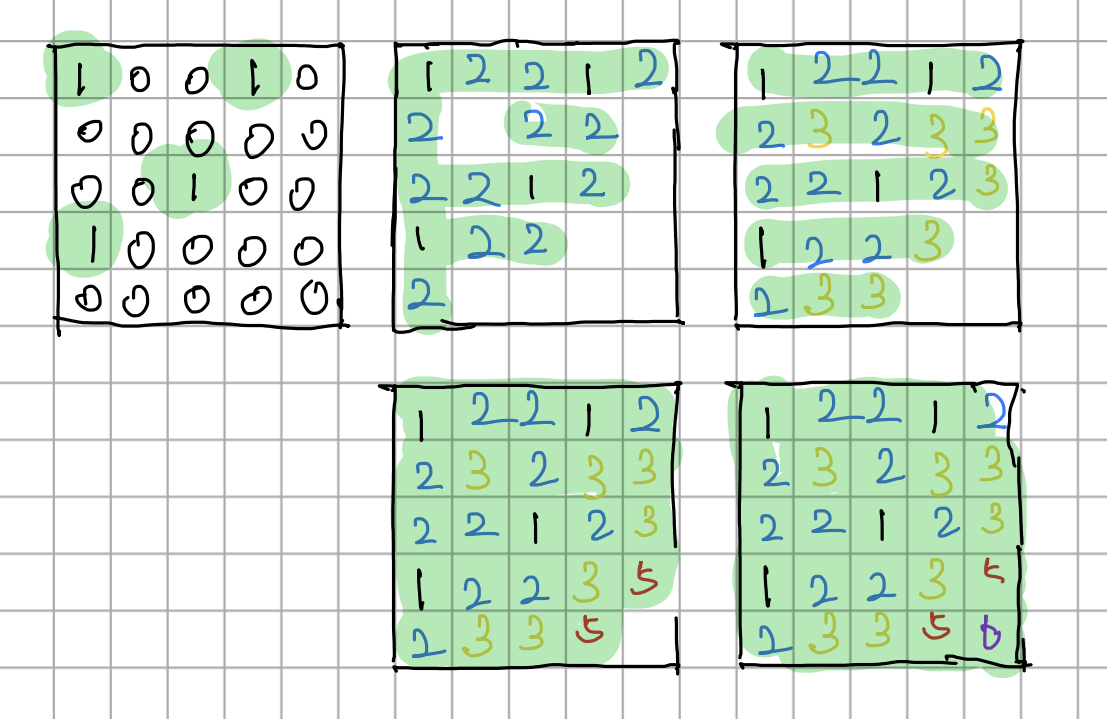 1 0 0 1 0
0 0 0 0 0
0 0 1 0 0
1 0 0 0 0
0 0 0 0 0
1 2 2 1 2
2 2 2
2 2 1 2
1 2 2
2
1 2 2 1 2
2 3 2 3 3
2 2 1 2 3
1 2 2 3
2 3 3
1 2 2 1 2
2 3 2 3 3
2 2 1 2 3
1 2 2 3 5
2 3 3 5
1 2 2 1 2
2 3 2 3 3
2 2 1 2 3
1 2 2 3 5
2 3 3 5 6